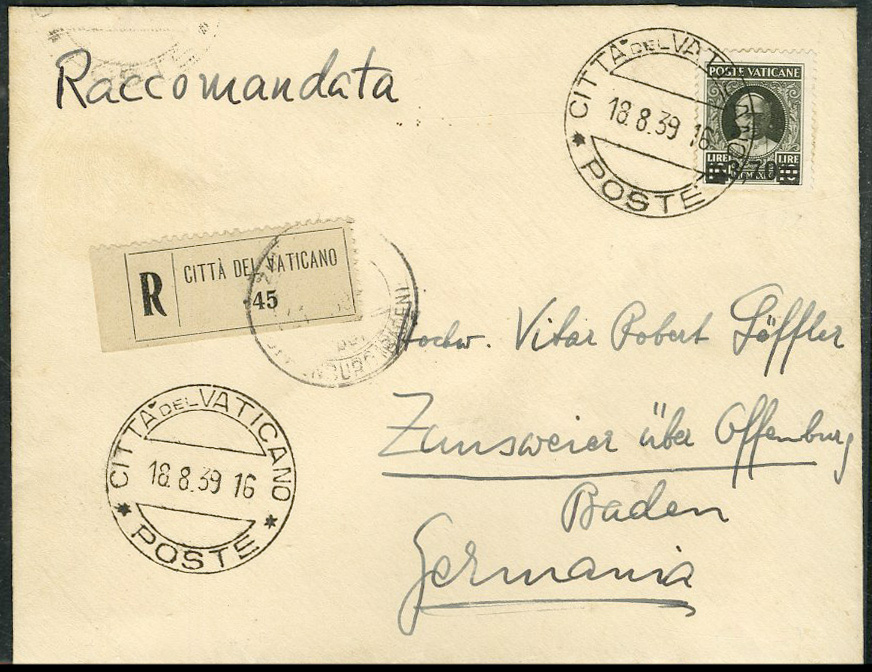 Raccomandata
CITTÀ DEL VATICANO
18.8.39 16
POSTE
POSTE VATICANE
LIRE LIRE
3,70
R
CITTÀ DEL VATICANO
45
Hochw. Vikar Robert Löffler
Zunsweier über Offenburg
Baden
Germania
CITTÀ DEL VATICANO
18.8.39 16
POSTE